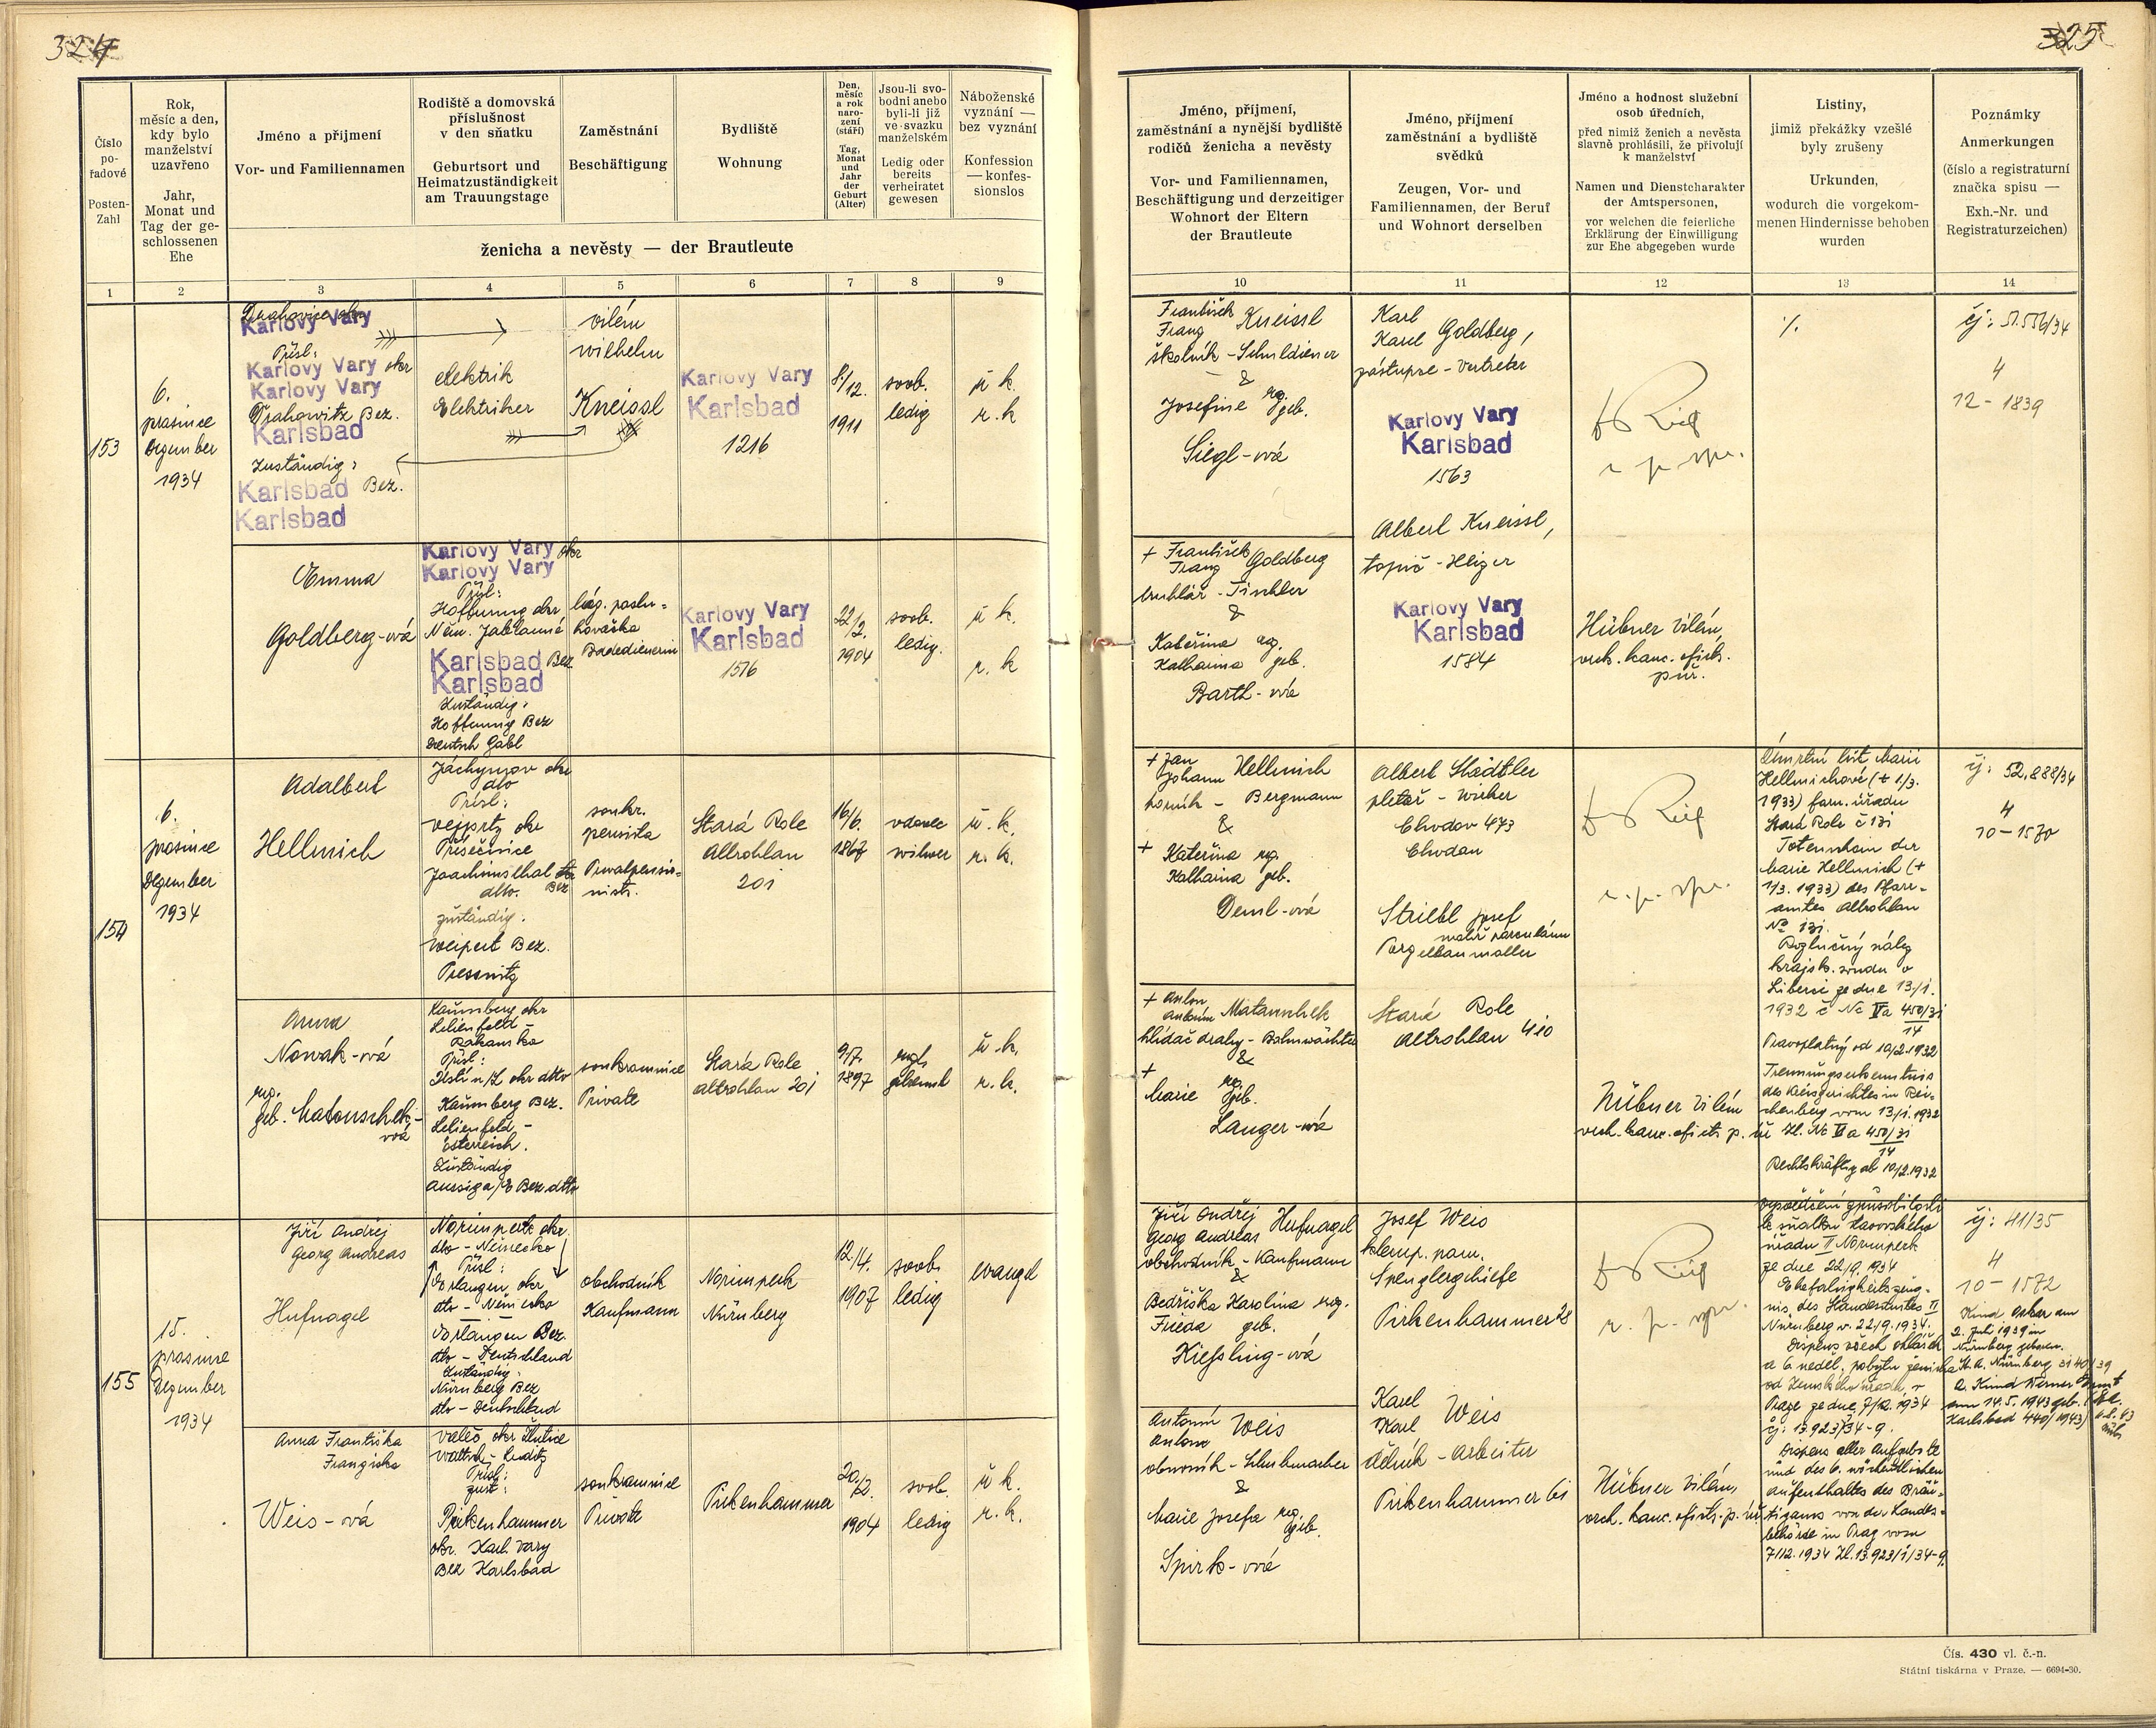 324
325
Číslo
po-
řadové
Posten-
Zahl
Rok,
měsíc a den,
kdy bylo
manželství
uzavřeno
Jahr,
Monat und
Tag der ge-
schlossenen
Ehe
Jméno a příjmení
Vor- und Familiennamen
Rodiště a domovská
příslušnost
v den sňatku
Geburtsort und
Heimatzuständigkeit
am Trauungstage
Zaměstnání
Beschäftigung
Bydliště
Wohnung
Den,
měsíc
a rok
naro-
zení
(stáří)
Tag,
Monat
und
Jahr
der
Geburt
(Alter)
Jsou-li svo-
bodni anebo
byli-li již
ve svazku
manželském
Ledig oder
bereits
verheiratet
gewesen
Náboženské
vyznání —
bez vyznání
Konfession
— konfes-
sionslos
ženicha a nevěsty — der Brautleute
Jméno, příjmení,
zaměstnání a nynější bydliště
rodičů ženicha a nevěsty
Vor- und Familiennamen,
Beschäftigung und derzeitiger
Wohnort der Eltern
der Brautleute
Jméno, příjmení
zaměstnání a bydliště
svědků
Zeugen, Vor- und
Familiennamen, der Beruf
und Wohnort derselben
Jméno a hodnost služební
osob úředních,
před nimiž ženich a nevěsta
slavně prohlásili, že přivolují
k manželství
Namen und Dienstcharakter
der Amtspersonen,
vor welchen die feierliche
Erklärung der Einwilligung
zur Ehe abgegeben wurde
Listiny,
jimiž překážky vzešlé
byly zrušeny
Urkunden,
wodurch die vorgekom-
menen Hindernisse behoben
wurden
Poznámky
Anmerkungen
(číslo a registraturní
značka spisu —
Exh.-Nr. und
Registraturzeichen)
1 2 3 4 5 6 7 8 9 10 11 12 13 14
153
6.
prosince
Dezember
1934
Karlovy Vary
Přísl:
Karlovy Vary okr
Karlovy Vary
Drahowitz Bez.
Karlsbad
Zuständig:
Karlsbad Bez.
Karlsbad
elektrik
Elektriker
Vilém
Wilhelm
Kneissl
Karlovy Vary
Karlsbad
1216
8./12.
1911
svob.
ledig
ř. k.
r. k.
František
Franz Kneissl
školník - Schuldiener
&
Josefine roz. geb.
Siegl-ová
Karl
Karel Goldberg,
zástupce - Vertreter
Karlovy Vary
Karlsbad
1563
Albert Kneissl,
topič - Heizer
Karlovy Vary
Karlsbad
1584
%
čj: 51.556/34
4
12 - 1839
Emma
Goldberg-ová
Karlovy Vary okr
Karlovy Vary
Přísl:
Hoffnung okr
Něm. Jablonné
Karlsbad Bez
Karlsbad
Zuständig:
Hoffnung Bez
Deutsch Gabl
láz. poslu-
hovačka
Badedienerin
Karlovy Vary
Karlsbad
1516
22/2.
1904
svob.
ledig.
ř. k.
r. k
+ František
Franz Goldberg
truhlář - Tischler
&
Kateřina roz.
Katharina geb.
Barth-ová
Hübner Vilém
vrch. kanc. ofic.
154
6.
prosince
Dezember
1934
Adalbert
Hellmich
Jáchymov okr
dto
Přísl:
Vejprty okr
Přísečnice
Joachimsthal
dto. Bez
zuständig:
Weipert Bez.
Pressnitz
soukr.
pensista
Privatpensio-
nist.
Stará Role
Altrohlau
201
16/6.
1867
vdovec
witwer
ř. k.
r. k.
+ Jan
Johann Hellmich
horník - Bergmann
&
+ Kateřina roz.
Katharina geb.
Deml-ová
Albert Städtler
pletař - Wirker
Chodov 473
Chodau
Striebl Josef
malíř porculánu
Porzellanmaller
Stará Role
Altrohlau 410
Úmrtní list Marie
Hellmichové (+ 1/3.
1933) farn. úřadu
Stará Role č 131
Totenschein der
Marie Hellmich (+
1/3. 1933) des Pfarr-
amtes Altrohlau
No 131.
Rozlučný nález
krajsk. soudu v
Liberci ze dne 13./1.
1932 č Nc Va 450/31
14
Pravoplatný od 10/2.1932
Trennungserkenntnis
des Kreisgerichtes in Rei-
chenberg vom 13/1.1932
Zl. Nc Va 450/31
14
Rechtskräftig ab 10/2.1932
čj: 52.888/34
4
10-1570
Anna
Nowak-ová
roz.
geb. Matouschek-
ová
Kaumberg okr
Lilienfeld -
Rakousko
Přísl:
Ústí n/L okr dtto
Kaumberg Bez.
Lilienfeld -
Österreich.
Zuständig
Aussig a/E Bez. dtto
soukromnice
Private
Stará Role
Altrohlau 201
9/7.
1897
rozl.
getrennt
ř. k.
r. k.
+ Anton
Antonín Matouschek
hlídač dráhy - Bahnwächter
&
+
Marie roz. geb.
Langer-ová
Hübner Vilém
vrch. kanc. ofic. p. úř
155
15.
prosince
Dezember
1934
Jiří Andrej
Georg Andreas
Hufnagel
Norimperk okr
dto - Německo
Přísl:
Erlangen, okr
dto - Německo
Erlangen Bez.
dto - Deutschland
Zuständig:
Nürnberg Bez
dto - Deutschland
obchodník
Kaufmann
Norimperk
Nürnberg
12./4.
1907
svob.
ledig
evangel
Jiří Andrej
Georg Andreas Hufnagel
obchodník - Kaufmann
&
Bedřiška Karolina roz.
Frieda geb.
Kiessling-ová
Josef Weis
klemp. pom.
Spenglergehilfe
Pirkenhammer 28
Karel
Karl Weis
dělník - Arbeiter
Pirkenhammer 61
Vysvědčení způsobilosti
k sňatku stavovského
úřadu II Norimperk
ze dne 22/9. 1934
Ehefähigkeitszeug-
nis des Standesamtes II
Nürnberg v. 22/9.1934.
Dispens všech ohlášek
a 6 neděl. pobytu ženicha
od Zemského úřadu v
Praze ze dne 7/12. 1934
čj: 13.923/34-9.
Dispens aller Aufgebote
und des 6. wöchentlichen
Aufenthaltes des Bräu-
tigams von der Landes-
behörde in Prag vom
7/12.1934 Zl. 13.923/1/34-9.
čj: 41/35
4
10-1572
Kind Oskar am
2. Juli 1939 in
Nürnberg geboren.
St. A. Nürnberg
2. Kind Werner
am 14.5.1943 geb.
Karlsbad 440/1943
Anna Františka
Franziska
Weis-ová
Valeč okr Žlutice
Waltsch - Luditz
Přísl:
zust:
Pirkenhammer
okr. Karl. Vary
Bez Karlsbad
soukromnice
Private
Pirkenhammer
20/2.
1904
svob.
ledig
ř. k.
r. k.
Antonín
Anton Weis
obuvník - Schuhmacher
&
Marie Josefa roz. geb.
Spirk-ová
Hübner Vilém,
vrch. kanc. ofic. p. úř
Čís. 430 vl. č.-n.
Státní tiskárna v Praze. — 6694-30.